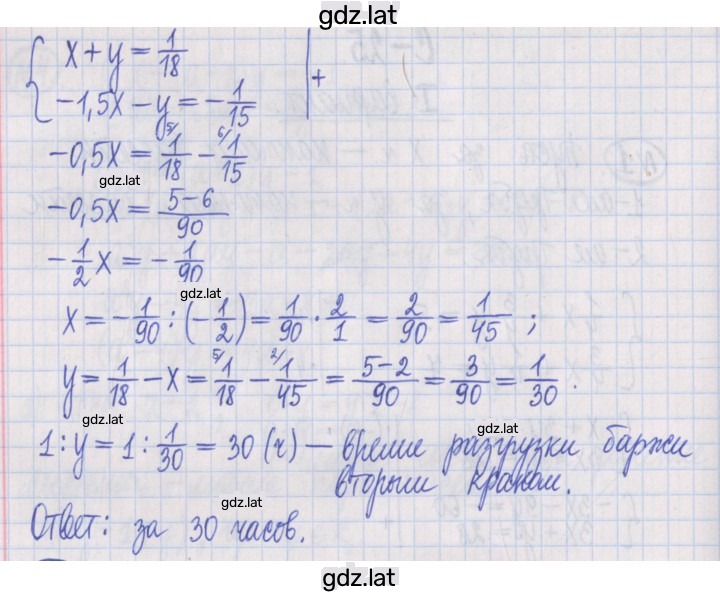 gdz.lat
{ x + y = 1/18
-1,5x - y = -1/15 | +
-0,5x = 1/18 (5/ - 1/15 (6/
gdz.lat
-0,5x = (5-6)/90
-1/2 x = -1/90
gdz.lat
x = -1/90 : (-1/2) = 1/90 · 2/1 = 2/90 = 1/45 ;
y = 1/18 - x = 1/18 (5/ - 1/45 (2/ = (5-2)/90 = 3/90 = 1/30 .
gdz.lat gdz.lat
1 : y = 1 : 1/30 = 30 (ч) — время разгрузки баржи
вторым краном.
gdz.lat
Ответ: за 30 часов.
gdz.lat